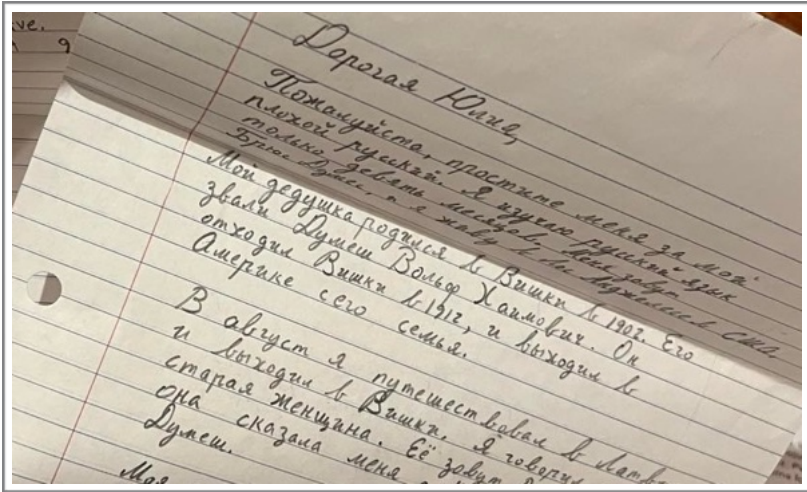 ve.
9
Дорогая Юлия,
Пожалуйста, простите меня за мой
плохой русский. Я изучаю русский язык
только девять месяцов. Меня зовут
Брюс Думеш, и я живу в Лос Анджелесе в США.
Мой дедушка родился в Вишки в 1902. Его
звали Думеш Вольф Хаимович. Он
отходил Вишки в 1912, и выходил в
Америке сего семья.
В август я путешествовал в
и выходил в Вишки. Я говорил
старая женщина. Её зовут
она сказала меня
Думеш.
Моя